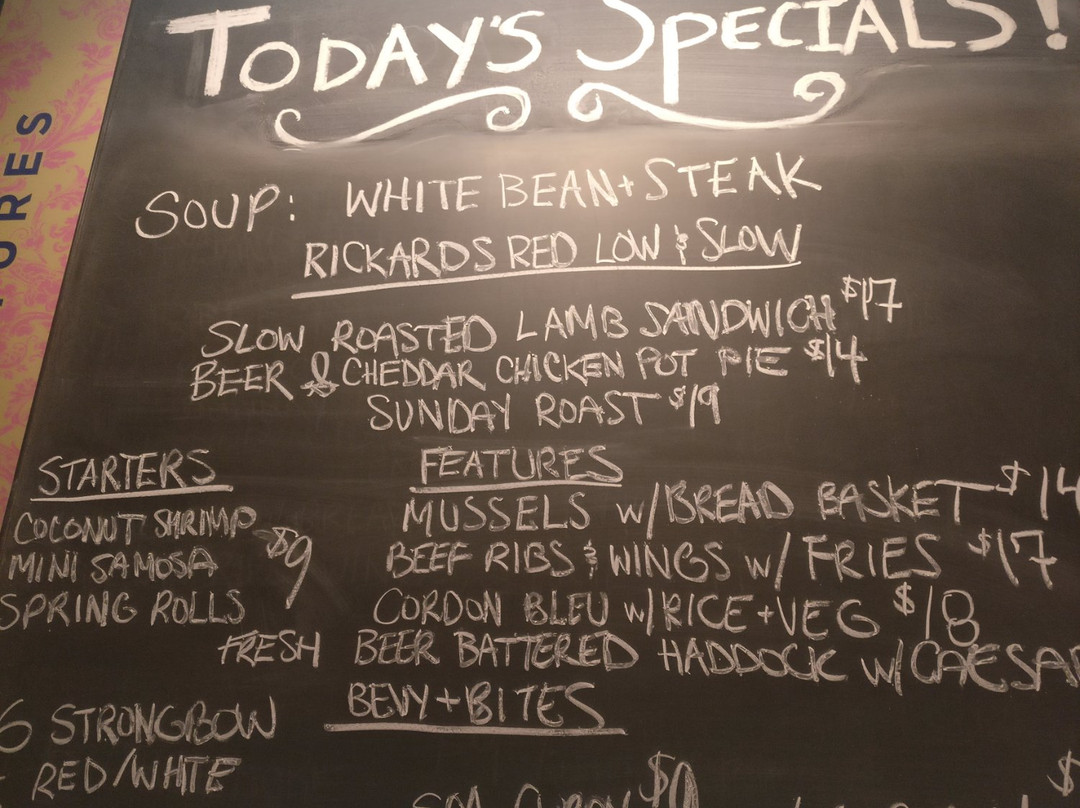 TODAY'S SPECIALS!
SOUP: WHITE BEAN + STEAK
RICKARDS RED LOW & SLOW
SLOW ROASTED LAMB SANDWICH $17
BEER & CHEDDAR CHICKEN POT PIE $14
SUNDAY ROAST $19
STARTERS
COCONUT SHRIMP
MINI SAMOSA $9
SPRING ROLLS
FEATURES
MUSSELS w/ BREAD BASKET $14
BEEF RIBS & WINGS w/ FRIES $17
CORDON BLEU w/ RICE + VEG $18
FRESH BEER BATTERED HADDOCK w/ CAESAR
BEVY + BITES
6 STRONGBOW
RED/WHITE